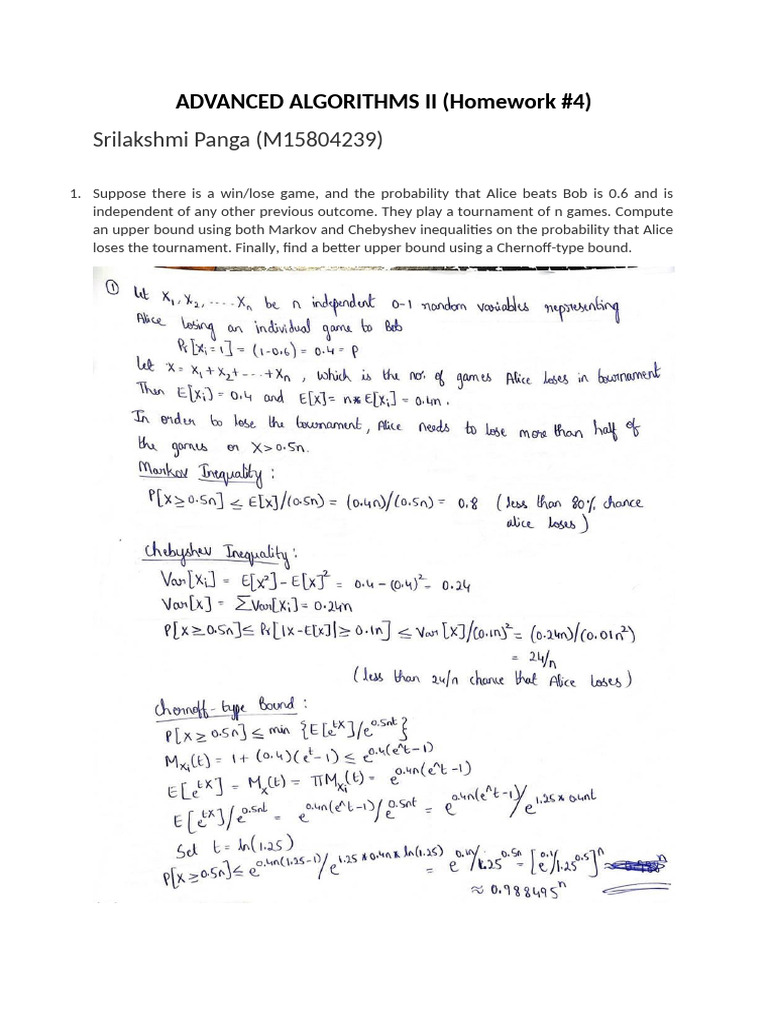 ADVANCED ALGORITHMS II (Homework #4)
Srilakshmi Panga (M15804239)
1. Suppose there is a win/lose game, and the probability that Alice beats Bob is 0.6 and is
independent of any other previous outcome. They play a tournament of n games. Compute
an upper bound using both Markov and Chebyshev inequalities on the probability that Alice
loses the tournament. Finally, find a better upper bound using a Chernoff-type bound.
① Let X₁, X₂, .... Xn be n independent 0-1 random variables representing
Alice losing an individual game to Bob
Pr[Xi=1] = (1-0.6) = 0.4 = P
Let X = X₁+X₂+---+Xn, which is the no. of games Alice loses in tournament
Then E[Xi] = 0.4 and E[X] = n*E[Xi] = 0.4n.
In order to lose the tournament, Alice needs to lose more than half of
the games or X>0.5n.
Markov Inequality:
P[X≥0.5n] ≤ E[X]/(0.5n) = (0.4n)/(0.5n) = 0.8 (less than 80% chance
alice loses)
Chebyshev Inequality:
Var[Xi] = E[X²]-E[X]² = 0.4-(0.4)² = 0.24
Var[X] = ΣVar[Xi] = 0.24n
P[X≥0.5n] ≤ Pr[|X-E[X]|≥0.1n] ≤ Var[X]/(0.1n)² = (0.24n)/(0.01n²)
= 24/n
(less than 24/n chance that Alice loses)
Chernoff-type Bound:
P[X≥0.5n] ≤ min {E[e^tX]/e^0.5nt}
M_Xi(t) = 1+(0.4)(e^t-1) ≤ e^0.4(e^t-1)
E[e^tX] = M_X(t) = ΠM_Xi(t) = e^0.4n(e^t-1)
E[e^tX]/e^0.5nt = e^0.4n(e^t-1)/e^0.5nt = e^0.4n(e^t-1)/e^1.25*0.4nt
Set t = ln(1.25)
P[X≥0.5n] ≤ e^0.4n(1.25-1)/e^1.25*0.4n*ln(1.25) = e^0.1n/1.25^0.5n = [e^0.1/1.25^0.5]^n
≈ 0.988495^n